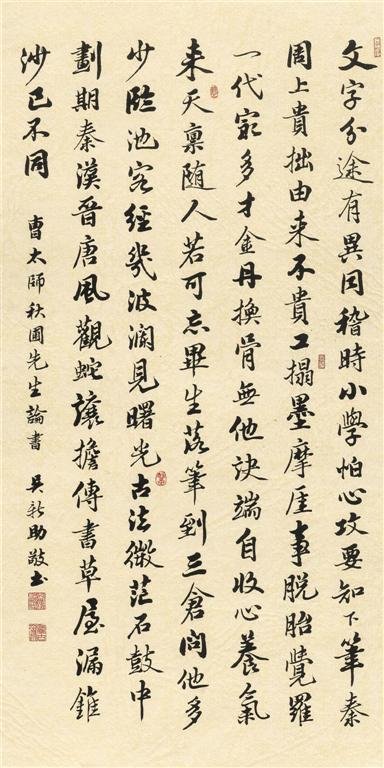 文字分途有異同稽時小學怕心攻要知下筆秦
周上貴拙由來不貴工搨墨摩崖事脫胎覺羅
一代最多才金丹換骨無他訣端自收心養氣
來天稟隨人若可忘畢生落筆到三倉問他多
少臨池客經幾波瀾見曙光古法微茫石鼓中
劃期秦漢晉唐風觀蛇讓擔傳書草屋漏錐
沙已不同
曹太師秋圃先生論書 吳新助敬書